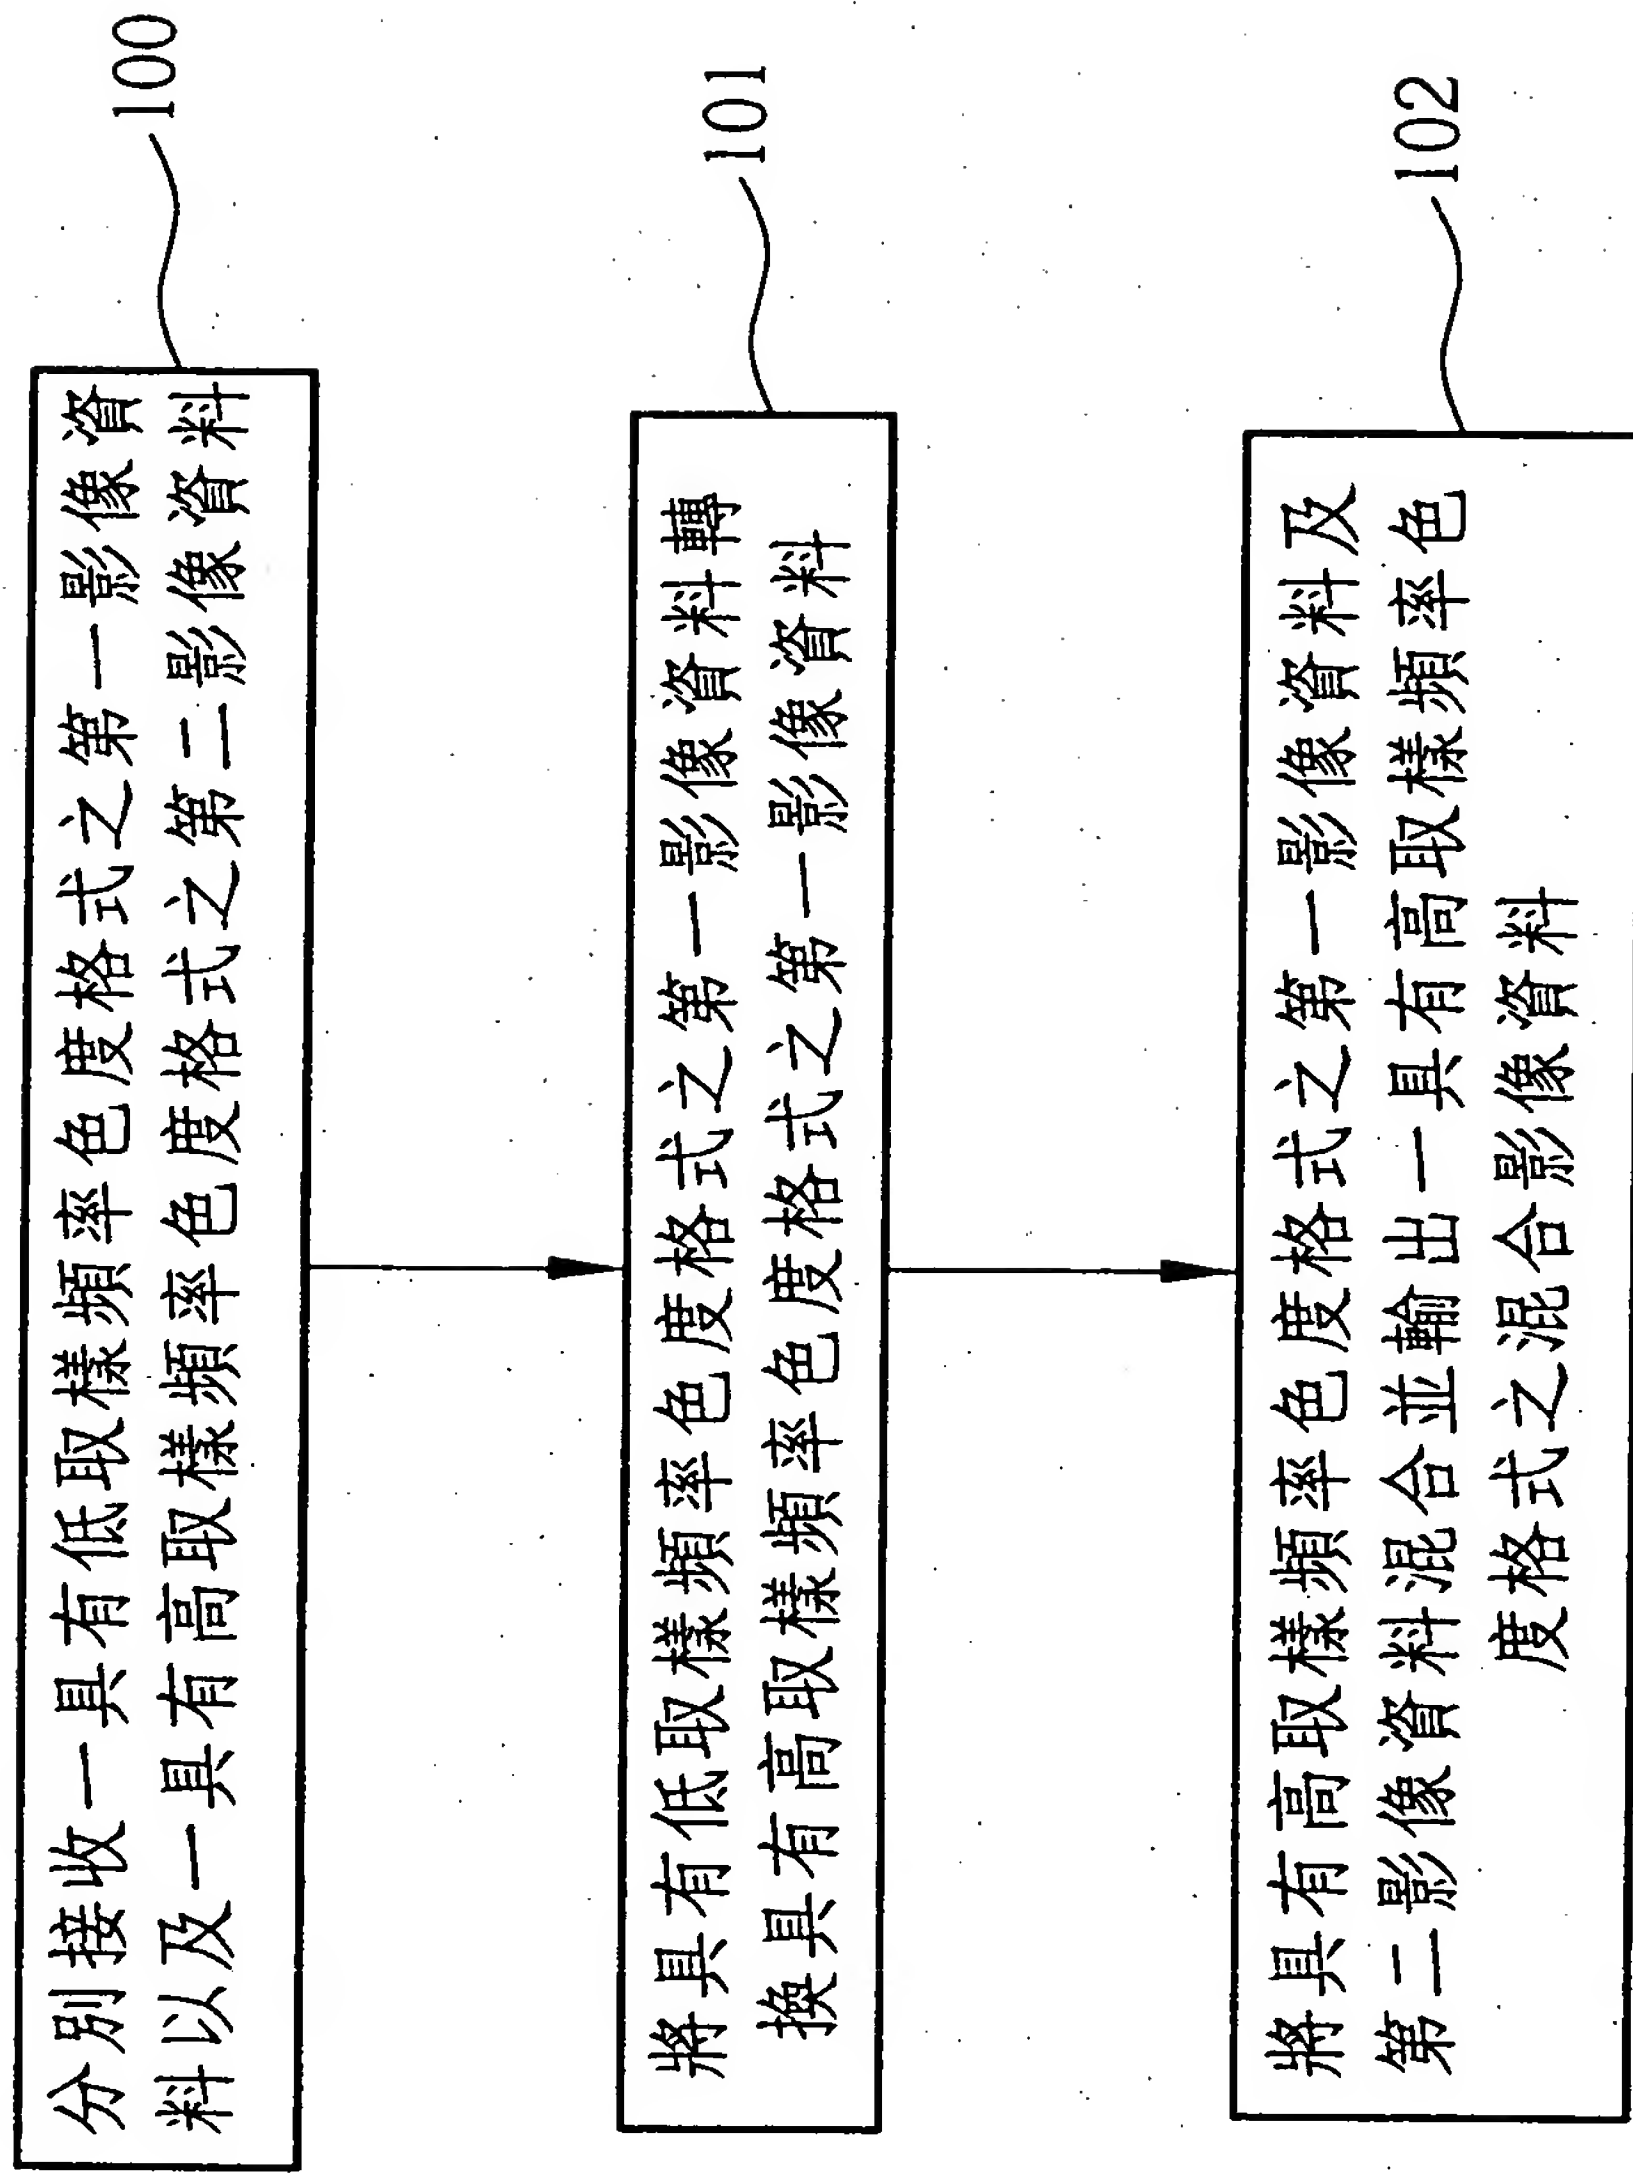 100
分別接收一具有低取樣頻率色度格式之第一影像資
料以及一具有高取樣頻率色度格式之第二影像資料
101
將具有低取樣頻率色度格式之第一影像資料轉
換具有高取樣頻率色度格式之第一影像資料
102
將具有高取樣頻率色度格式之第一影像資料及
第二影像資料混合並輸出一具有高取樣頻率色
度格式之混合影像資料